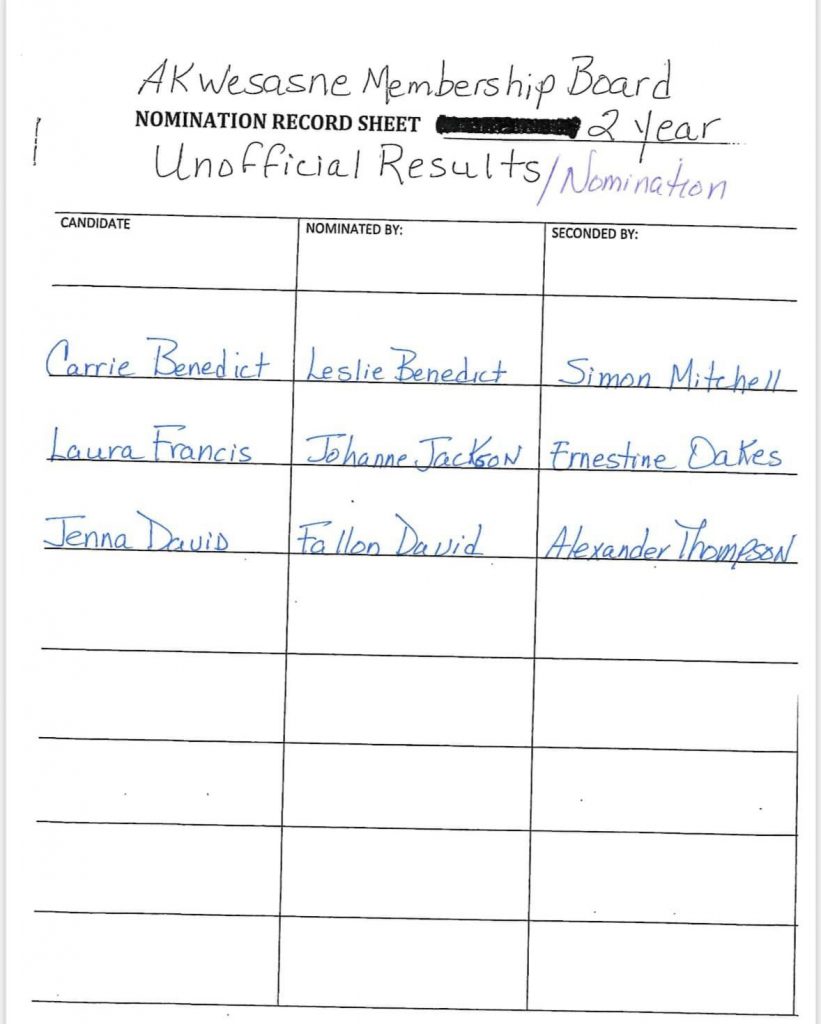 AKwesasne Membership Board
NOMINATION RECORD SHEET 2 Year
Unofficial Results/Nomination
CANDIDATE NOMINATED BY: SECONDED BY:
Carrie Benedict Leslie Benedict Simon Mitchell
Laura Francis Johanne Jackson Ernestine Oakes
Jenna David Fallon David Alexander Thompson